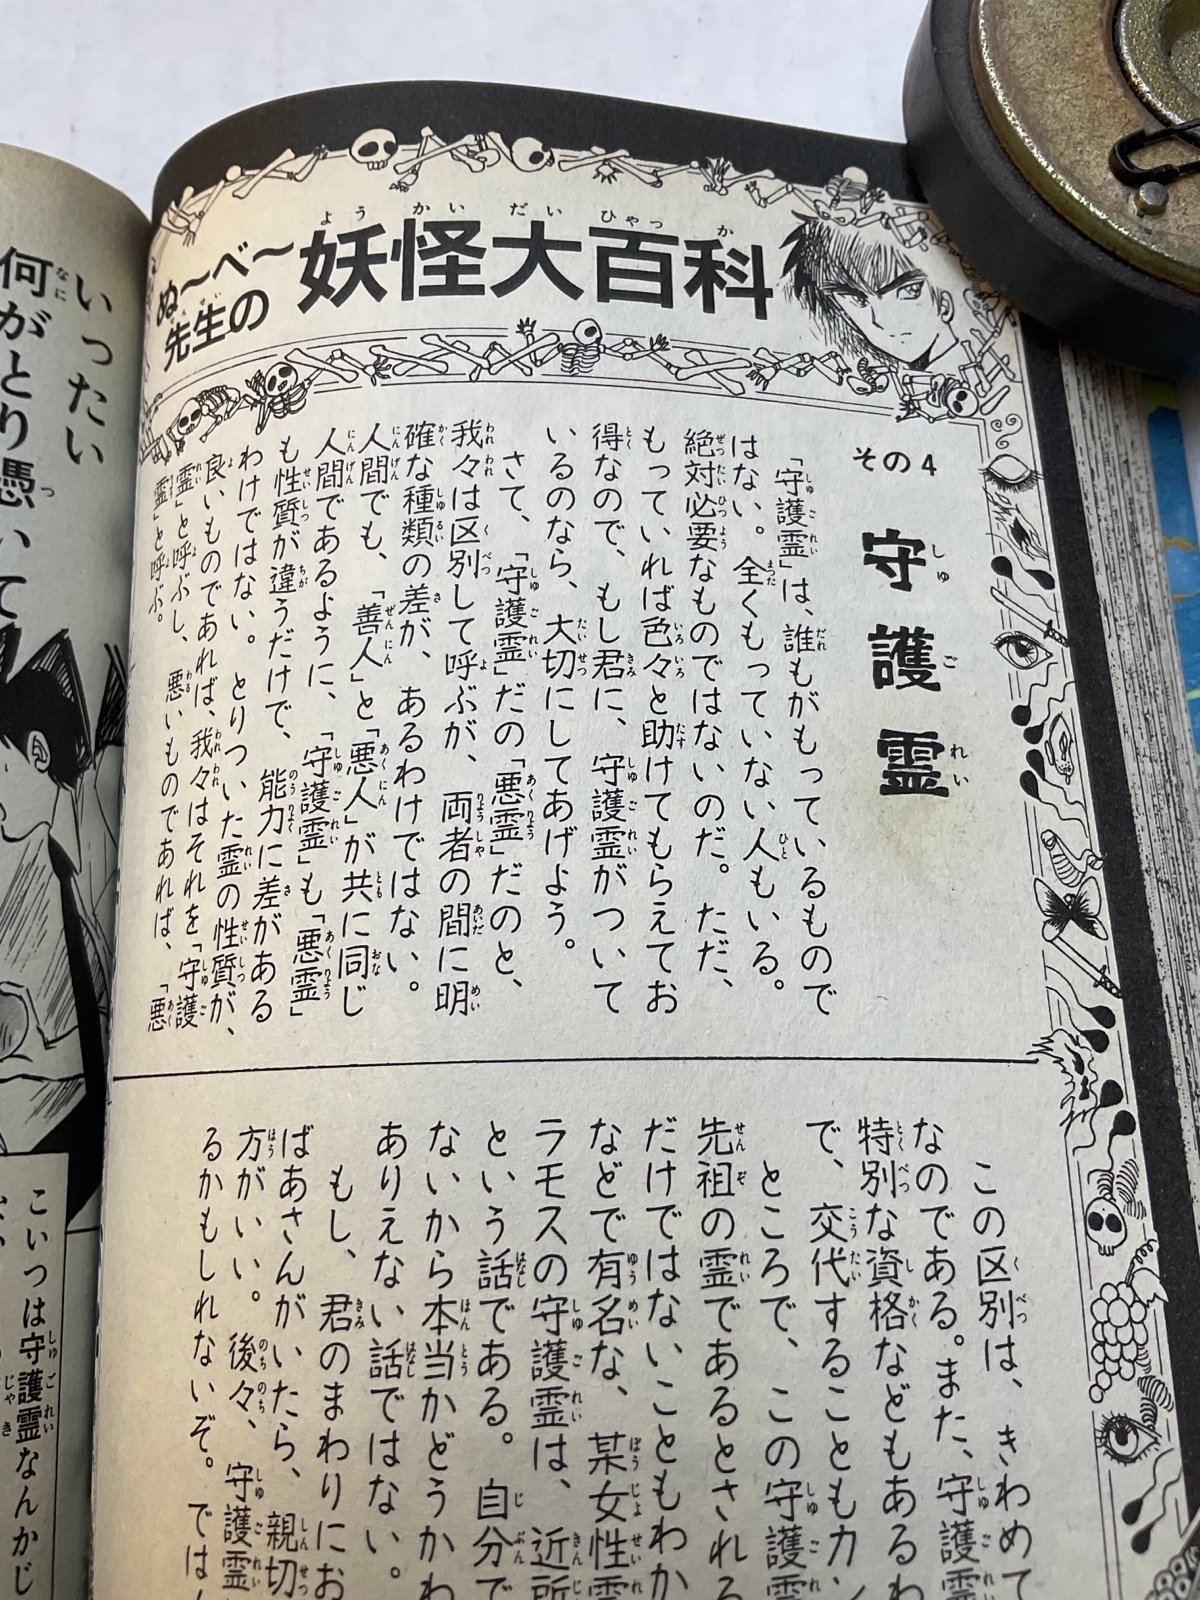 ぬ〜べ〜
先生の
妖怪大百科
その4
守護霊
「守護霊」は、誰もがもっているもので
はない。全くもっていない人もいる。
絶対必要なものではないのだ。ただ、
もっていれば色々と助けてもらえてお
得なので、もし君に、守護霊がついて
いるのなら、大切にしてあげよう。
さて、「守護霊」だの「悪霊」だのと、
我々は区別して呼ぶが、両者の間に明
確な種類の差が、あるわけではない。
人間でも、「善人」と「悪人」が共に同じ
人間であるように、「守護霊」も「悪霊」
も性質が違うだけで、能力に差がある
わけではない。とりついた霊の性質が、
良いものであれば、我々はそれを「守護
霊」と呼ぶし、悪いものであれば、「悪
霊」と呼ぶ。
この区別は、きわめて
なのである。また、守護霊
特別な資格などもあるわ
で、交代することもカン
ところで、この守護霊
先祖の霊であるとされる
だけではないこともわか
などで有名な、某女性霊
ラモスの守護霊は、近所
という話である。自分で
ないから本当かどうかわ
ありえない話ではない。
もし、君のまわりにお
ばあさんがいたら、親切
方がいい。後々、守護霊
るかもしれないぞ。では
いったい
何がとり憑いて
こいつは守護霊なんかじ